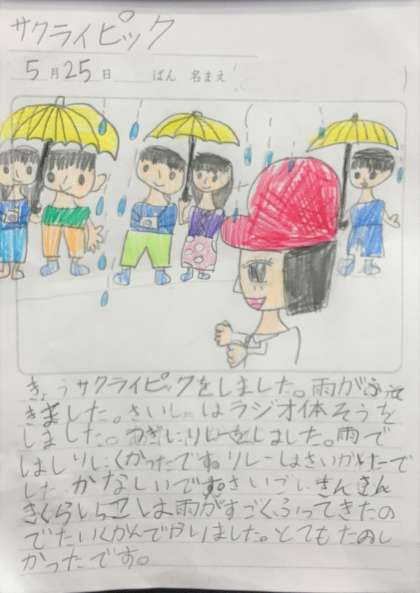 サクライピック
5月25日 ばん 名まえ
きょうサクライピックをしました。雨がふって
きました。さいしょはラジオ体そうを
しました。つぎにリレーをしました。雨で
はしりにくかったです。リレーはさいかいで
した かなしいです。さいごに きんきん
きくらいらには雨がすごくふってきたの
でたいくかんでやりました。とてもたのし
かったです。